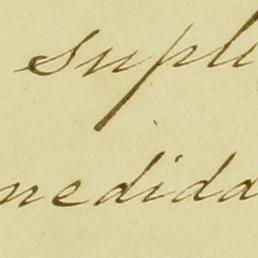 supli
nedida